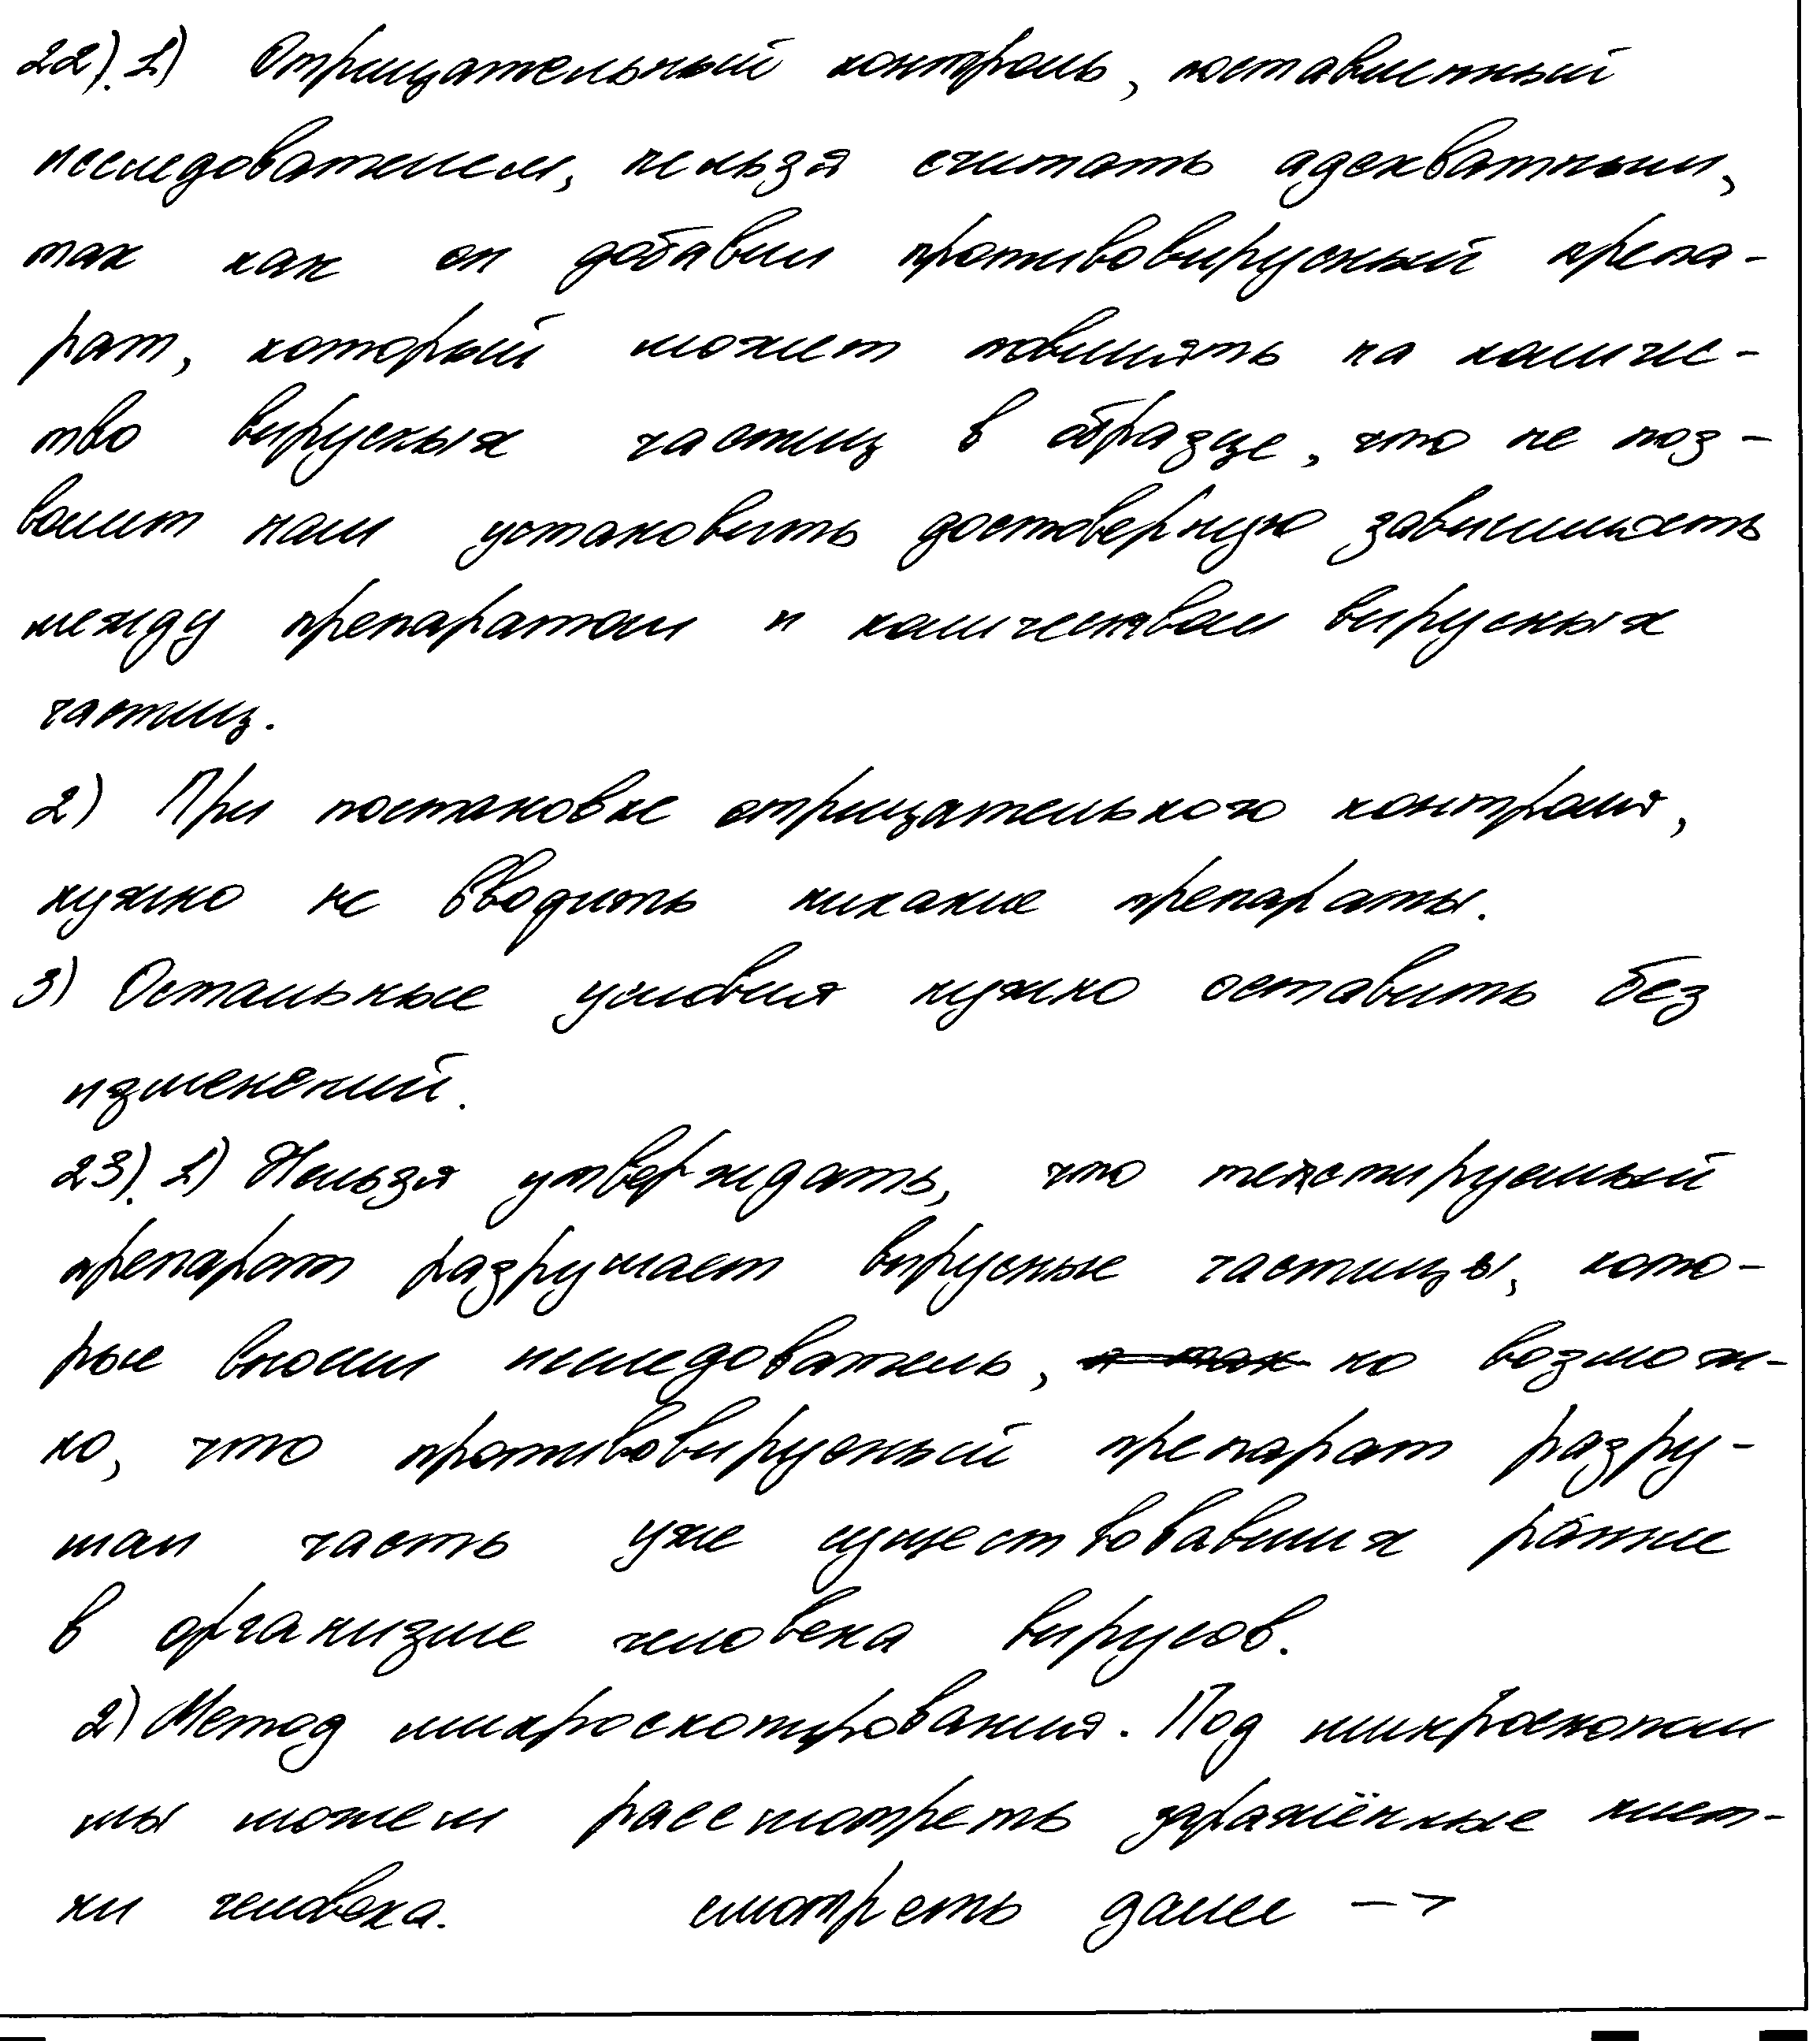 22). 1) Отрицательный контроль, поставленный
исследователем, нельзя считать адекватным,
так как он добавил противовирусный препа-
рат, который может повлиять на количес-
тво вирусных частиц в образце, что не поз-
волит нам установить достоверную зависимость
между препаратом и количеством вирусных
частиц.
2) При постановке отрицательного контроля,
нужно не вводить никакие препараты.
3) Остальные условия нужно оставить без
изменений.
23). 1) Нельзя утверждать, что тестируемый
препарат разрушает вирусные частицы, кото-
рые вносил исследователь, но возмож-
но, что противовирусный препарат разру-
шал часть уже существовавших ранее
в организме человека вирусов.
2) Метод микроскопирования. Под микроскопом
мы можем рассмотреть заражённые клет-
ки человека. смотреть далее —>